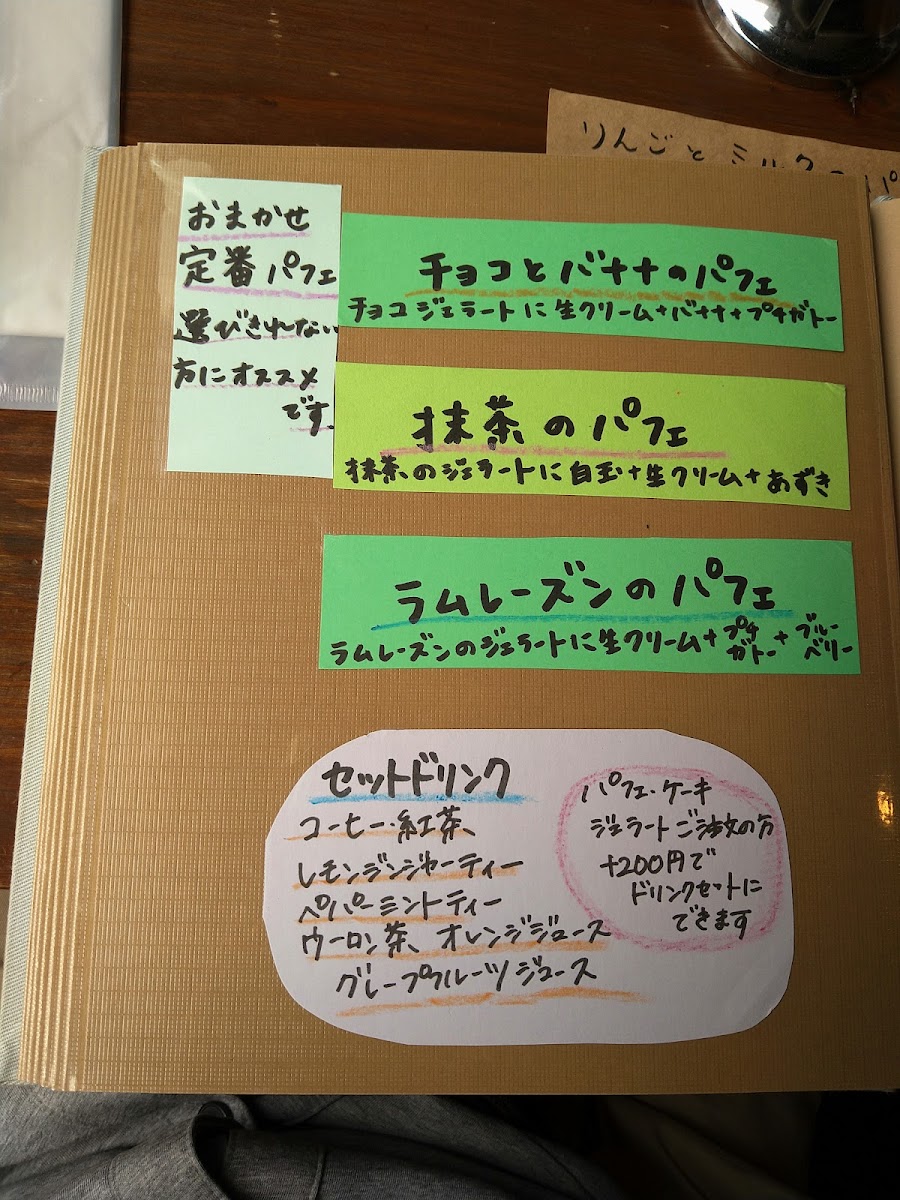 りんごとミルクのパ
おまかせ
定番パフェ
選びきれない
方にオススメ
です。
チョコとバナナのパフェ
チョコジェラートに生クリーム+バナナ+プチガトー
抹茶のパフェ
抹茶のジェラートに白玉+生クリーム+あずき
ラムレーズンのパフェ
ラムレーズンのジェラートに生クリーム+プチガトー+ブルーベリー
セットドリンク
コーヒー・紅茶、
レモンジンジャーティー
ペパーミントティー
ウーロン茶、オレンジジュース
グレープフルーツジュース
パフェ・ケーキ
ジェラートご注文の方
+200円で
ドリンクセットに
できます